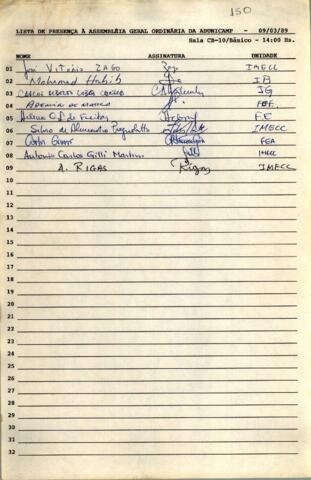 150
LISTA DE PRESENÇA À ASSEMBLÉIA GERAL ORDINÁRIA DA ADUNICAMP - 09/03/89
Sala CB-10/Básico - 14:00 Hs.
NOME ASSINATURA UNIDADE
01 José Vitório ZAGO Zago IMECC
02 Mohamed Habib IB
03 CARLOS IG
04 ADEMIR DE FEF.
05 de Freitas F.E
06 Silvio de Alencastro Pregnolatto IMECC
07 FEA
08 Antonio Carlos Gilli Martins Gilli IMECC
09 A. RIGAS Rigas IMECC
10
11
12
13
14
15
16
17
18
19
20
21
22
23
24
25
26
27
28
29
30
31
32